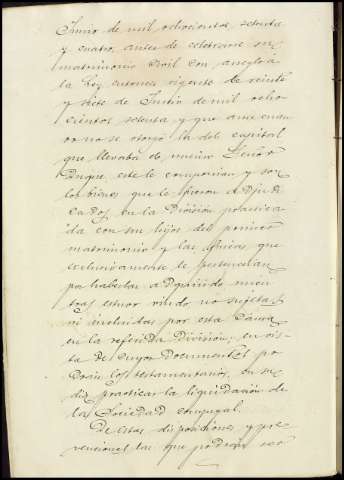 Junio de mil ochocientos setenta
y cuatro, antes de celebrarse su
matrimonio civil con arreglo á
la Ley entonces vigente de veinte
y siete de Junio de mil ocho
cientos setenta y que aun cuan
do no se otorgó la del capital
que llevaba el mismo Señor
Duque este le componian y son
los bienes que le fueron adjudi
cados en la División practica
da con sus hijos del primer
matrimonio y las fincas que
exclusivamente le pertenecian
por haberlas adquirido mien
tras estuvo viudo no sujetas
ni incluidas por esta causa
en la referida División; en vis
ta de cuyos documentos po
drán los testamentarios, en su
dia practicar la liquidación de
la Sociedad conyugal.
De estas disposiciones y pre
venciones las que podrán